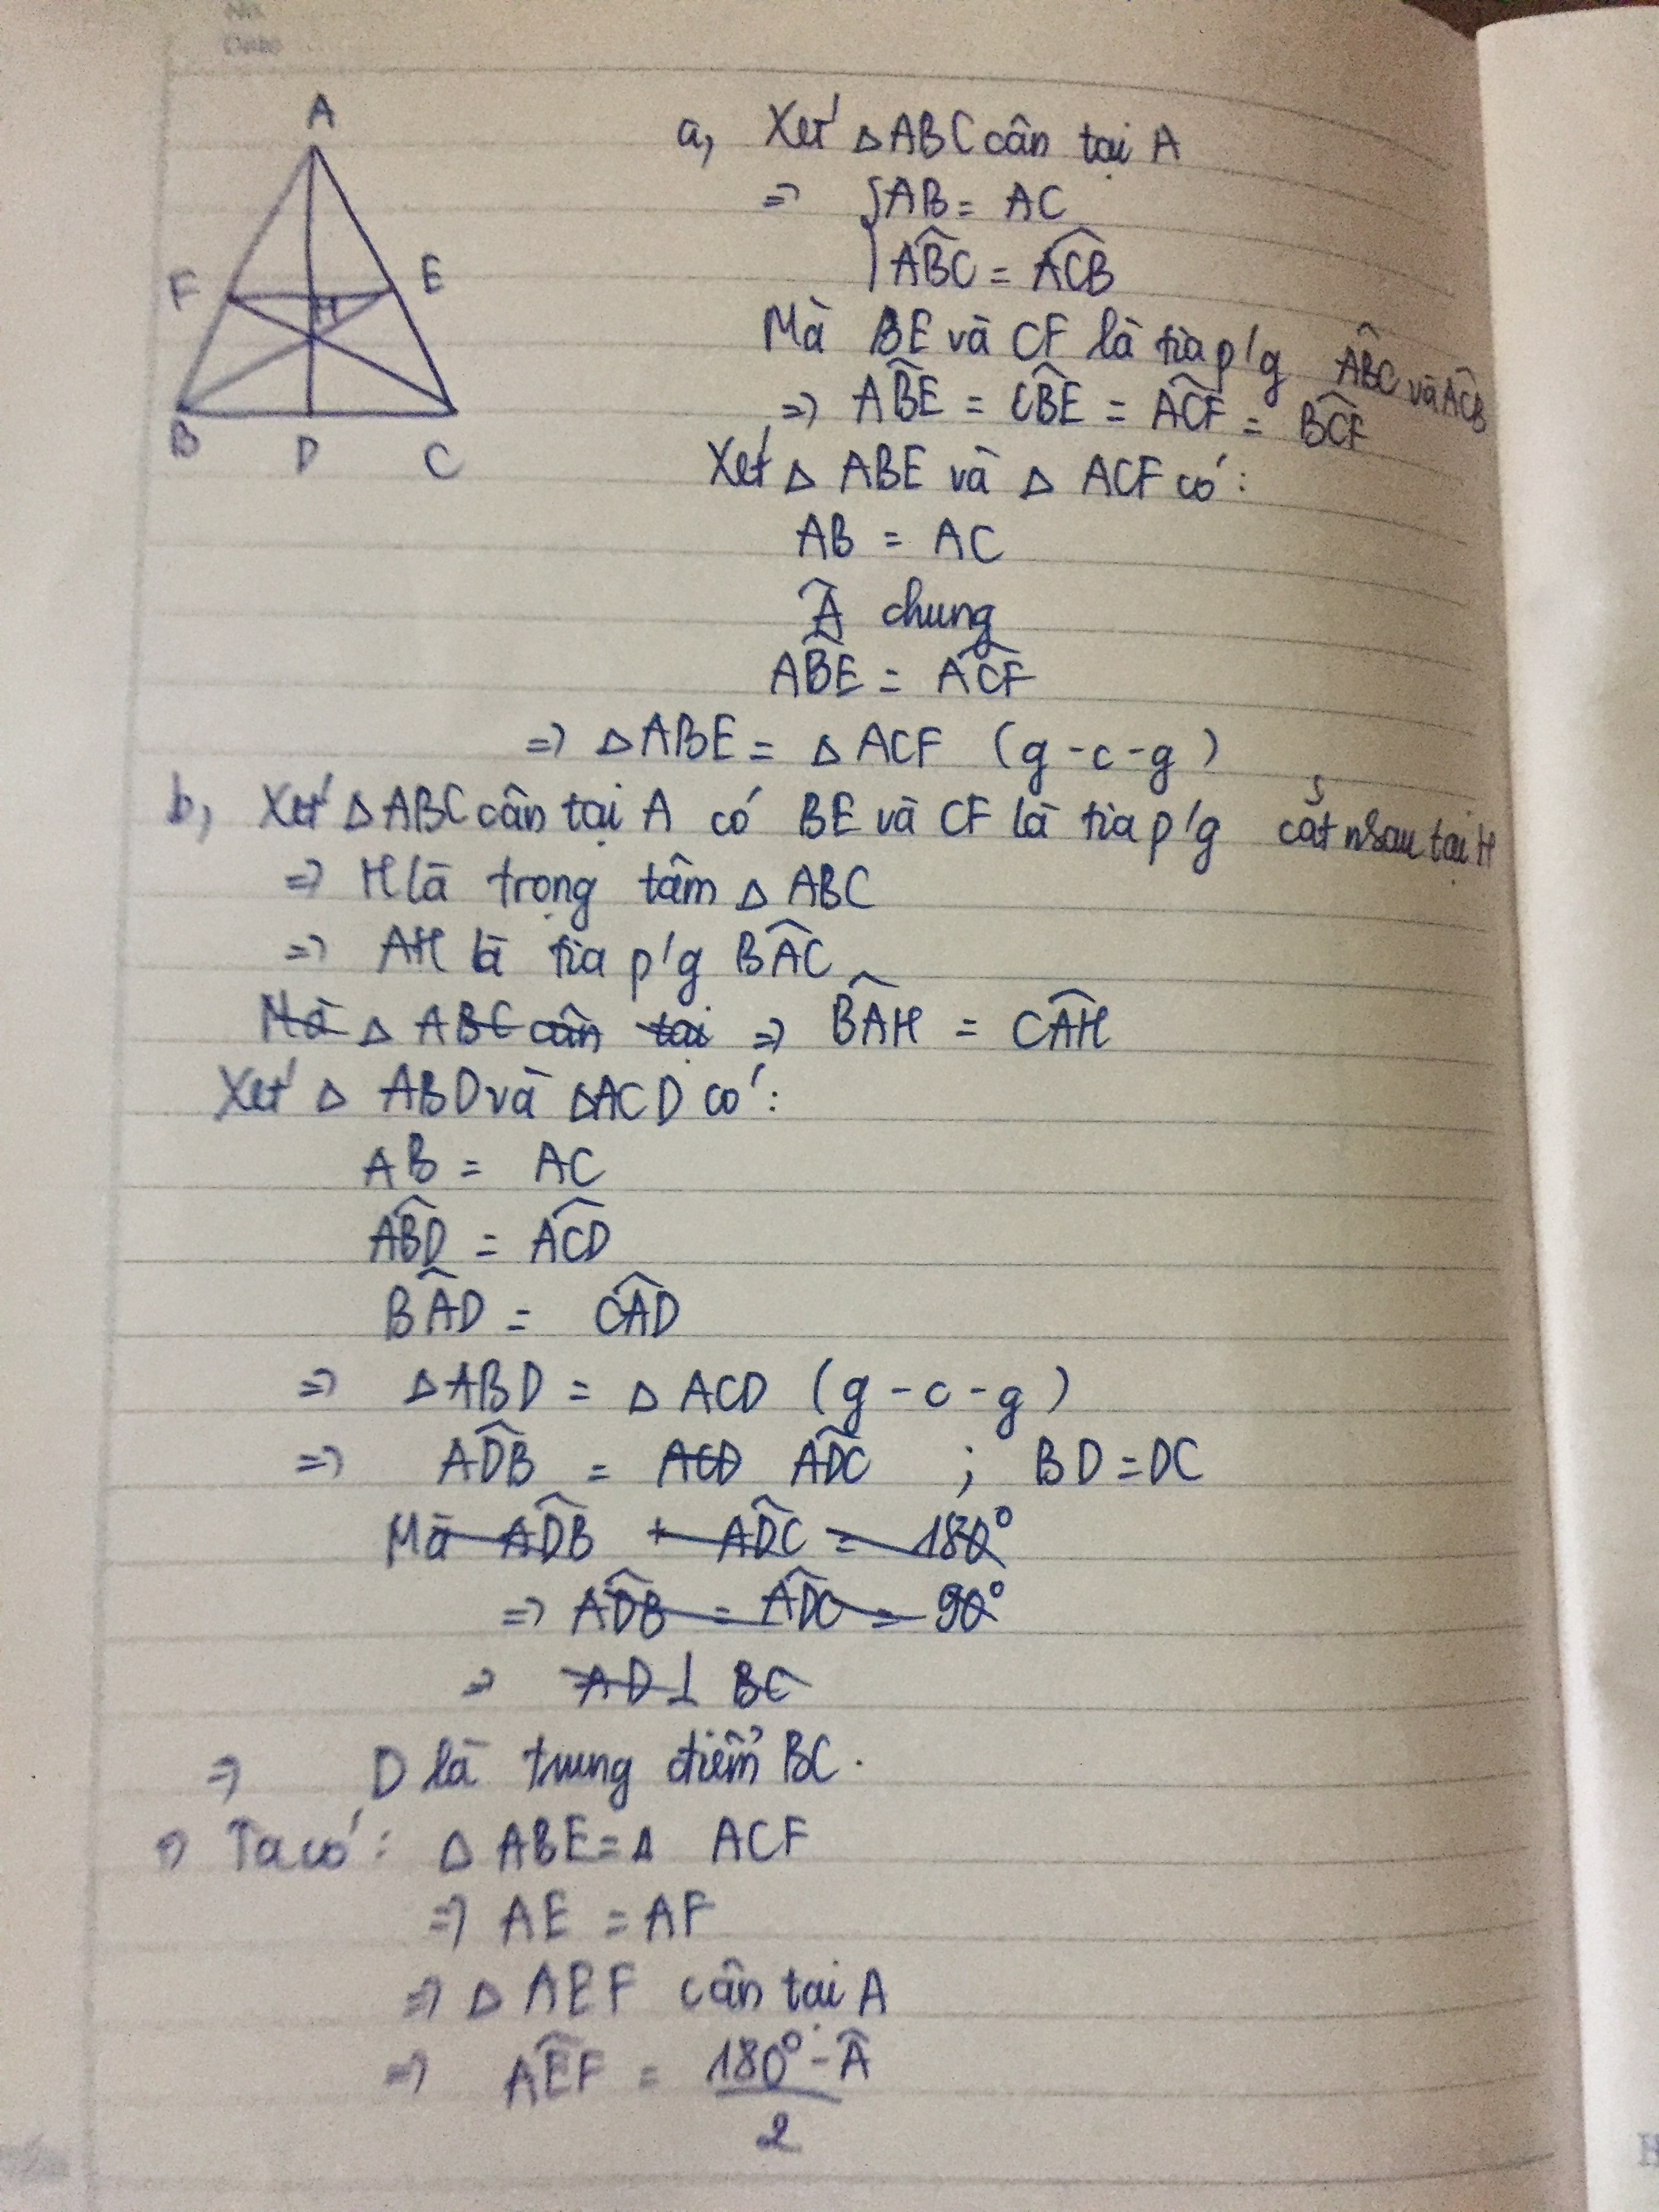 No.
Date
A
F
E
H
B
D
C
a, Xét △ABC cân tại A
=> { AB = AC
ABC^ = ACB^
Mà BE và CF là tia p/g ABC^ và ACB^
=> ABE^ = CBE^ = ACF^ = BCF^
Xét △ ABE và △ ACF có:
AB = AC
Â chung
ABE^ = ACF^
=> △ABE = △ ACF (g-c-g)
b, Xét △ABC cân tại A có BE và CF là tia p/g cắt nhau tại H
=> H là trọng tâm △ ABC
=> AH là tia p/g BAC^
Mà △ ABC cân tại => BAH^ = CAH^
Xét △ ABD và △ACD có:
AB = AC
ABD^ = ACD^
BAD^ = CAD^
=> △ABD = △ ACD (g-c-g)
=> ADB^ = ACD ADC^ ; BD = DC
Mà ADB^ + ADC^ = 180°
=> ADB^ = ADC^ = 90°
=> AD ⊥ BC
=> D là trung điểm BC.
=> Ta có: △ ABE = △ ACF
=> AE = AF
=> △ AEF cân tại A
=> AEF^ = 180° - Â
2
H